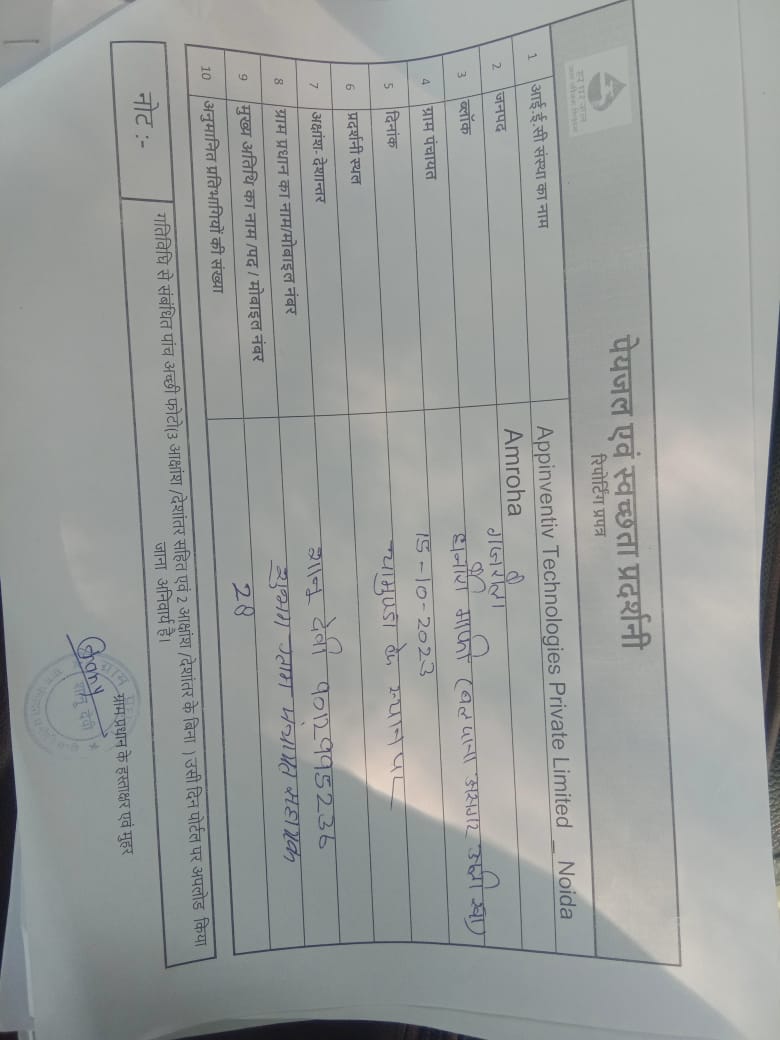 हर घर जल
जल जीवन मिशन
पेयजल एवं स्वच्छता प्रदर्शनी
रिपोर्टिंग प्रपत्र
1 आई.ई.सी संस्था का नाम Appinventiv Technologies Private Limited _ Noida
2 जनपद Amroha
3 ब्लॉक गजरौला
4 ग्राम पंचायत माफी
5 दिनांक 15-10-2023
6 प्रदर्शनी स्थल चामुण्डा के स्थान पर
7 अक्षांश- देशान्तर
8 ग्राम प्रधान का नाम/मोबाइल नंबर देवी
9 मुख्य अतिथि का नाम /पद / मोबाइल नंबर ग्राम पंचायत सहायक
10 अनुमानित प्रतिभागियों की संख्या 28
नोट :- गतिविधि से संबंधित पांच अच्छी फोटो(3 आक्षांश /देशांतर सहित एवं 2 आक्षांश /देशांतर के बिना ) उसी दिन पोर्टल पर अपलोड किया
जाना अनिवार्य है।
ग्राम प्रधान के हस्ताक्षर एवं मुहर